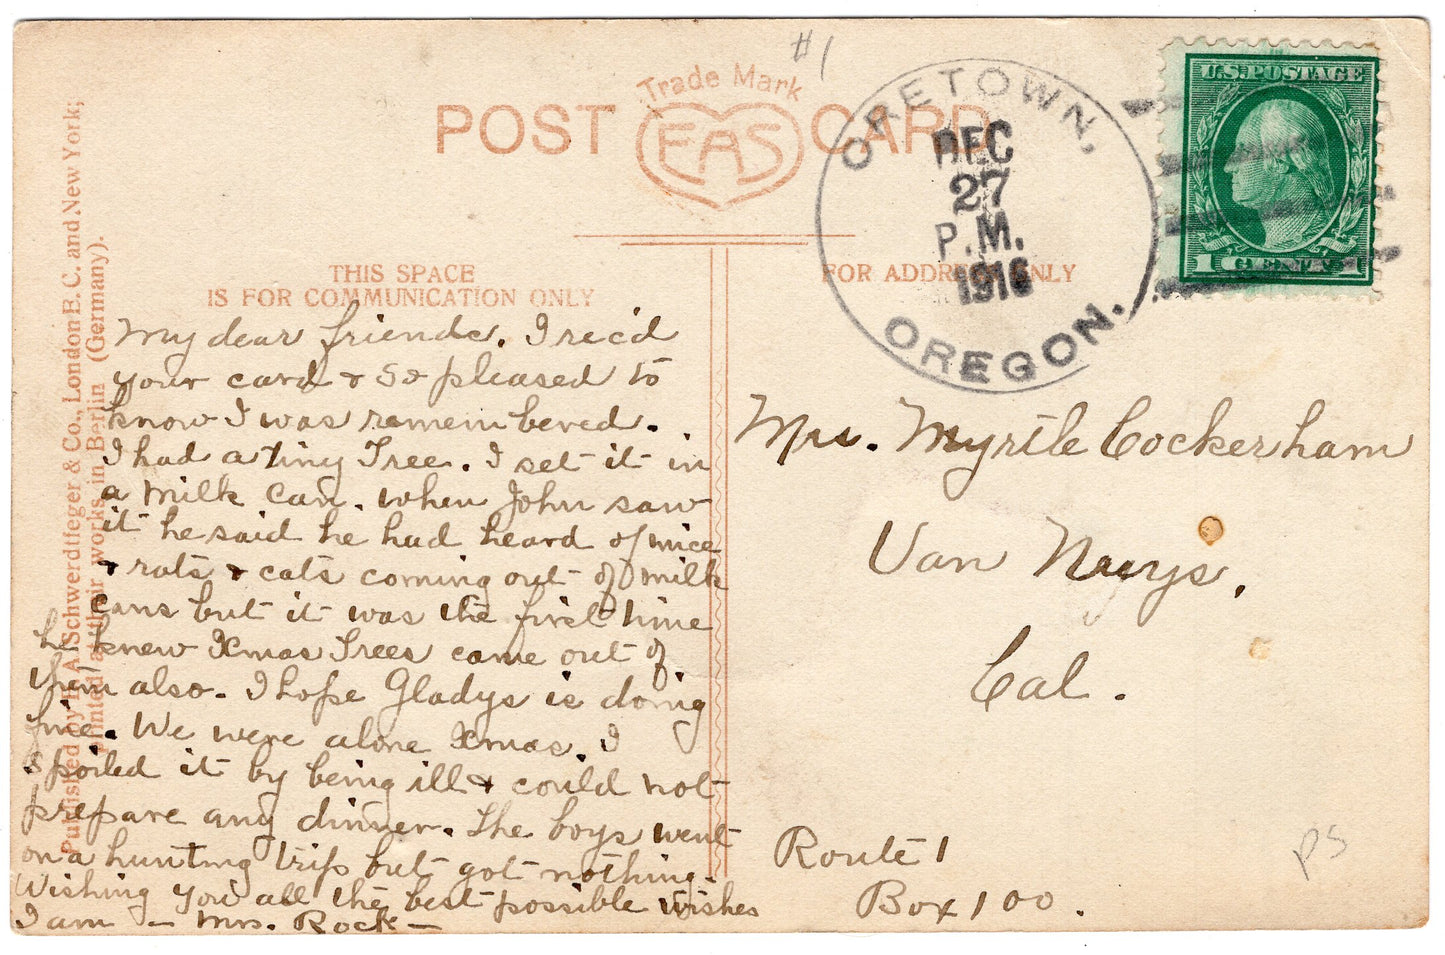 #1
POST CARD
Trade Mark
EAS
ORETOWN,
DEC
27
P.M.
1916
OREGON.
U.S. POSTAGE
1 CENT 1
THIS SPACE
IS FOR COMMUNICATION ONLY
FOR ADDRESS ONLY
Published by E. A. Schwerdtfeger & Co., London E. C. and New York;
printed at their works in Berlin (Germany).
My dear friends. I rec'd
your card & so pleased to
know I was remembered.
I had a tiny Tree. I set it in
a milk can. when John saw
it he said he had heard of mice
& rats & cats coming out of milk
cans but it was the first time
he knew Xmas Trees came out of
them also. I hope Gladys is doing
fine. We were alone Xmas. I
spoiled it by being ill & could not
prepare any dinner. The boys went
on a hunting trip but got nothing.
Wishing you all the best possible wishes
I am – Mrs. Rock –
Mrs. Myrtle Cockerham
Van Nuys,
Cal.
Route 1
Box 100.
PS